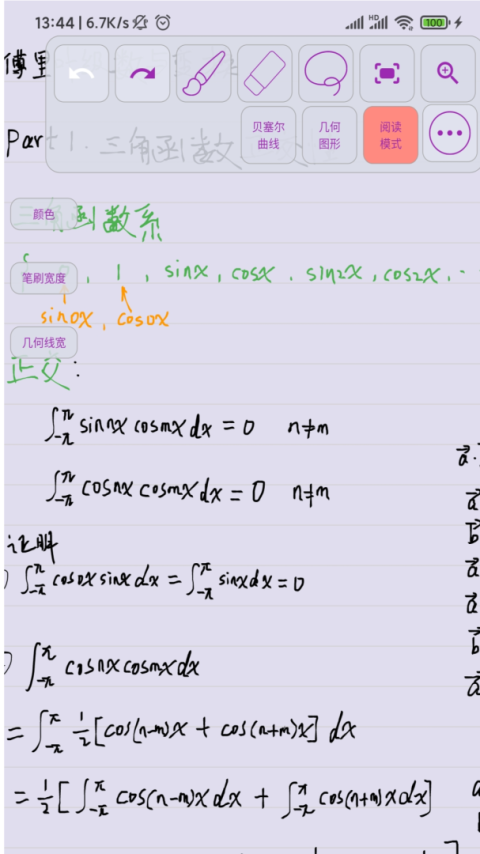 13:44 | 6.7K/s HD 100
傅里
贝塞尔曲线 几何图形 阅读模式
Part 1. 三角函数
颜色
三角函数系
笔刷宽度
0, 1, sinx, cosx, sin2x, cos2x, ..
sin0x, cos0x
几何线宽
正交:
∫_{-π}^{π} sinnx cosmx dx = 0 n≠m
∫_{-π}^{π} cosnx cosmx dx = 0 n≠m
证明
∫_{-π}^{π} cos0x sinx dx = ∫_{-π}^{π} sinx dx = 0
∫_{-π}^{π} cosnx cosmx dx
= ∫_{-π}^{π} 1/2 [cos(n-m)x + cos(n+m)x] dx
= 1/2 [∫_{-π}^{π} cos(n-m)x dx + ∫_{-π}^{π} cos(n+m)x dx]